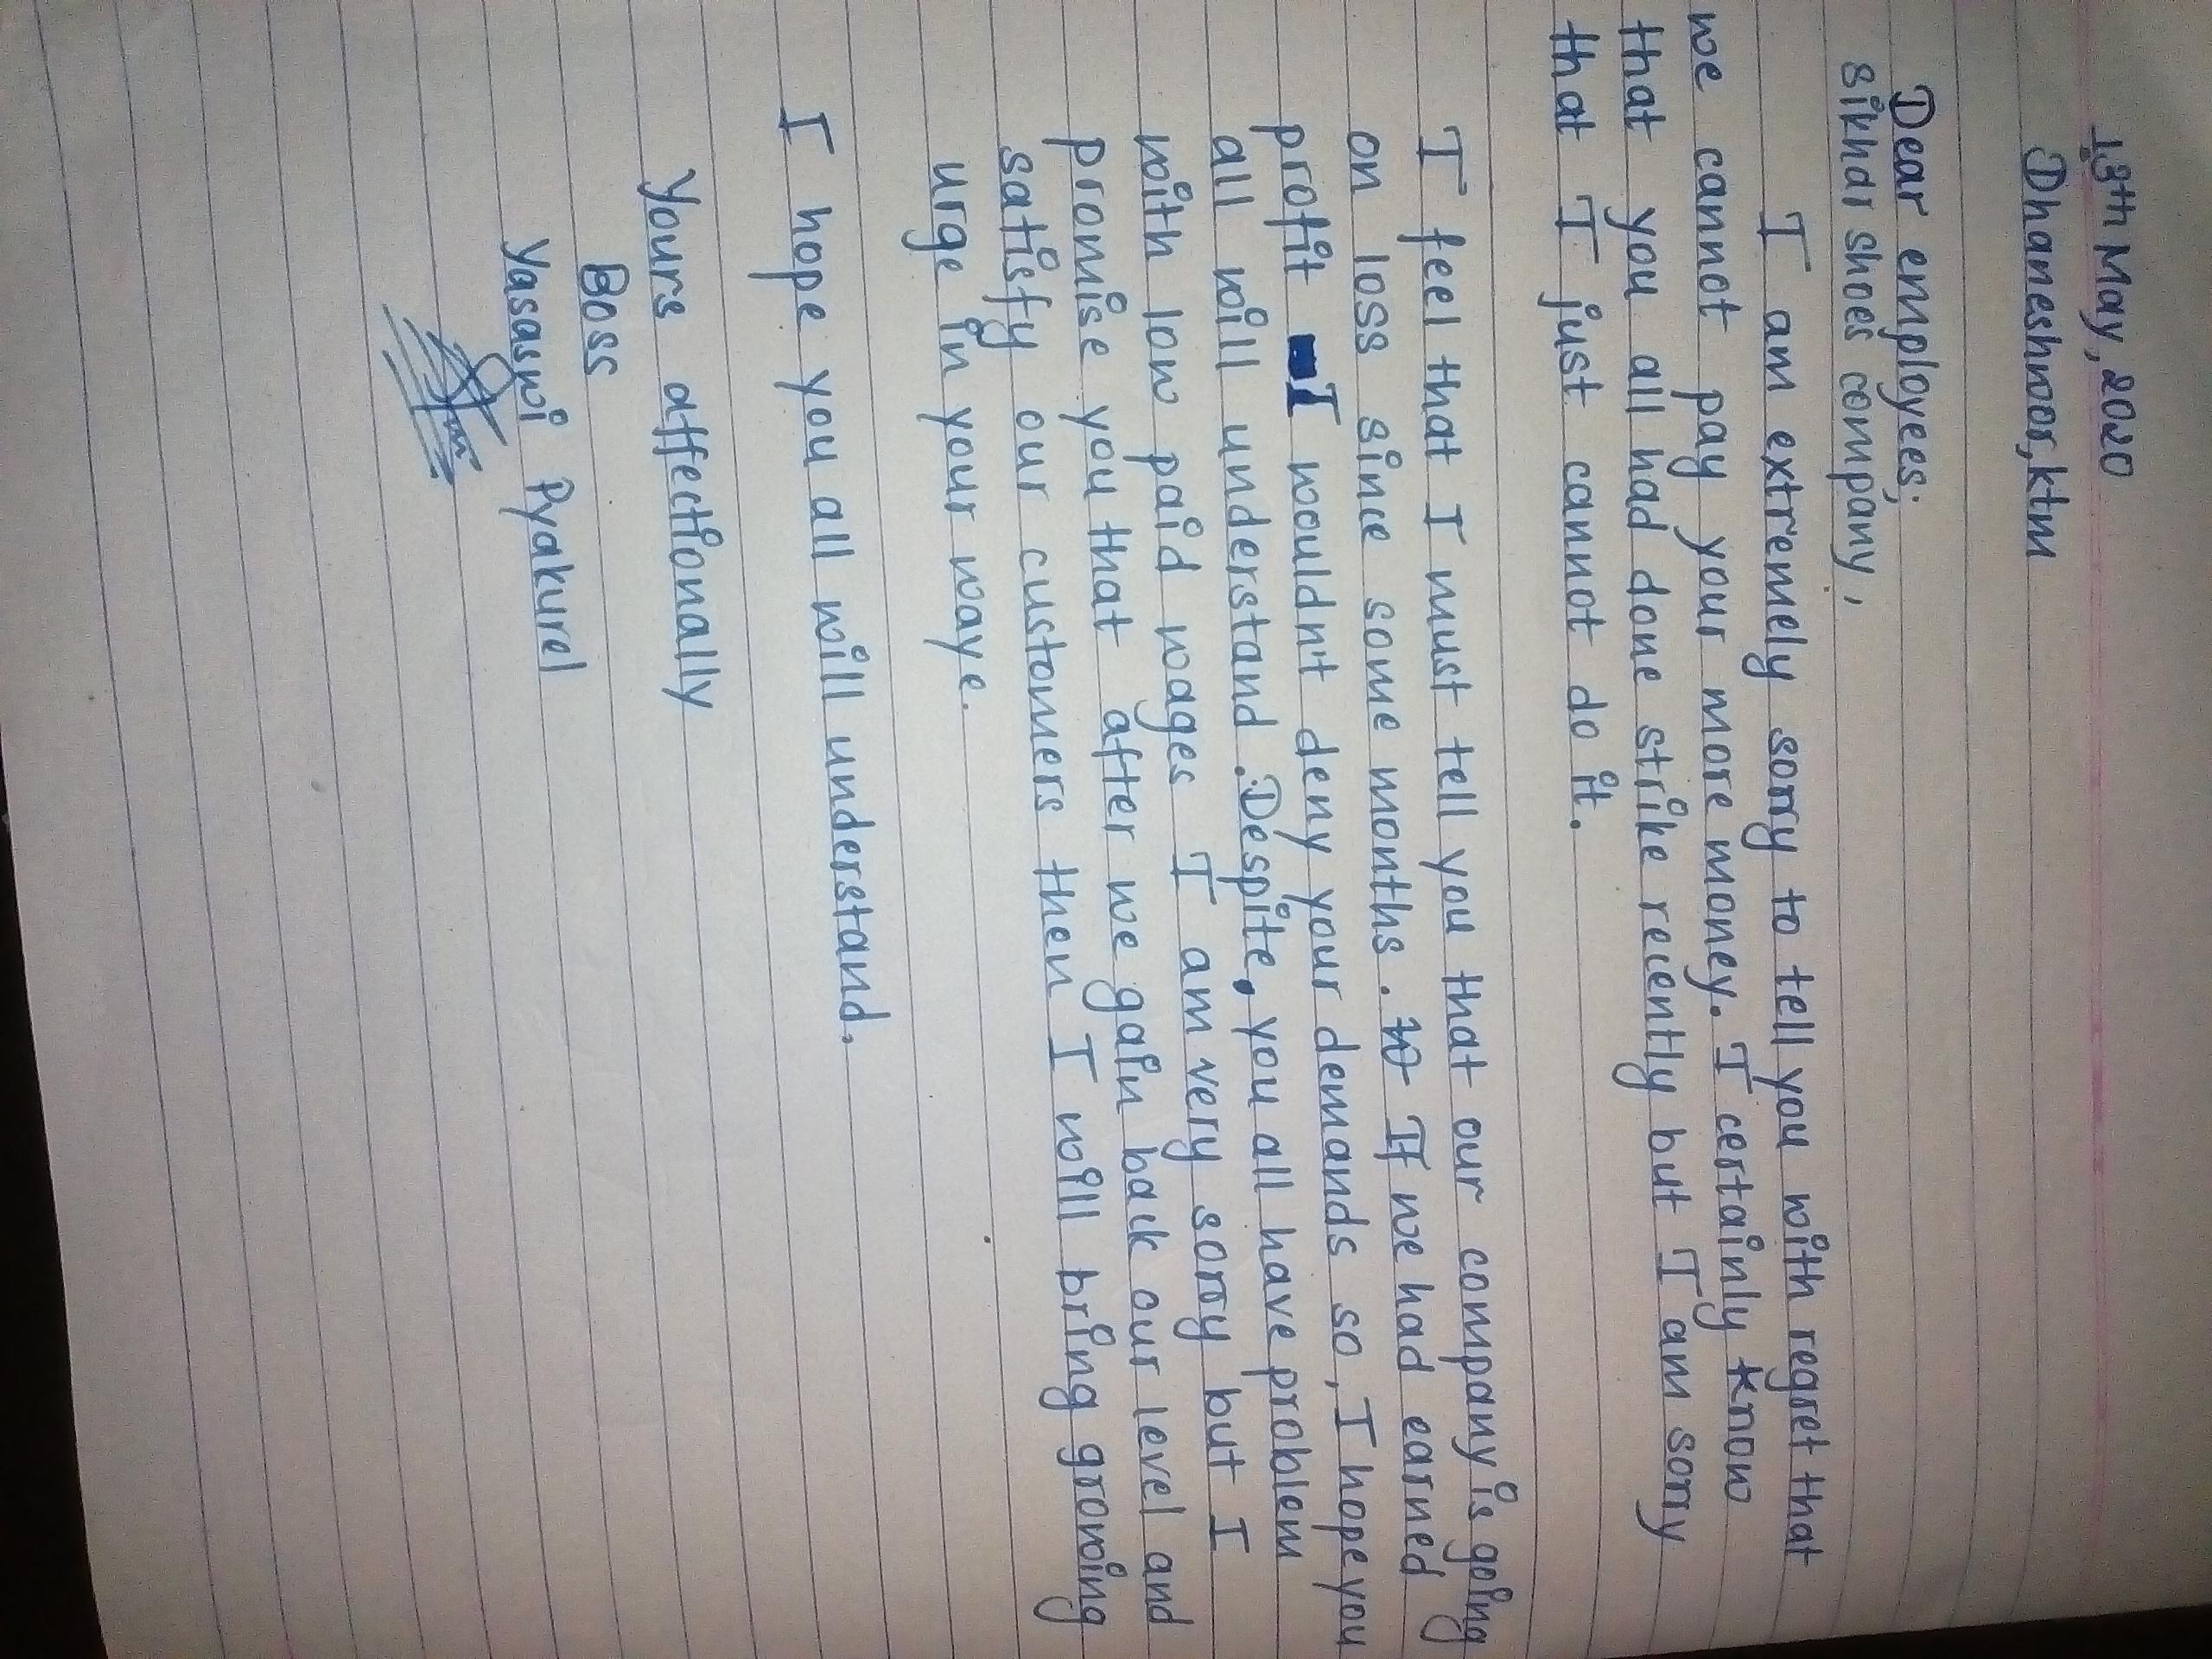 13th May, 2020
Dhaneshwor, ktm
Dear employees;
sikhar shoes company,
I am extremely sorry to tell you with regret that
we cannot pay your more money. I certainly know
that you all had done strike recently but I am sorry
that I just cannot do it.
I feel that I must tell you that our company is going
on loss since some months. If we had earned
profit I wouldn't deny your demands so, I hope you
all will understand. Despite, you all have problem
with low paid wages I am very sorry but I
promise you that after we gain back our level and
satisfy our customers then I will bring growing
urge in your waye.
I hope you all will understand.
Yours affectionally
Boss
Yasaswi Pyakurel